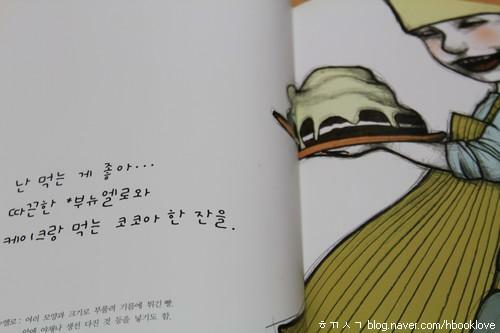 난 먹는 게 좋아...
따끈한 *부뉴엘로와
케이크랑 먹는 코코아 한 잔을.
뉴엘로 : 여러 모양과 크기로 부풀려 기름에 튀긴 빵.
안에 야채나 생선 다진 것 등을 넣기도 함.
blog.naver.com/hbooklove